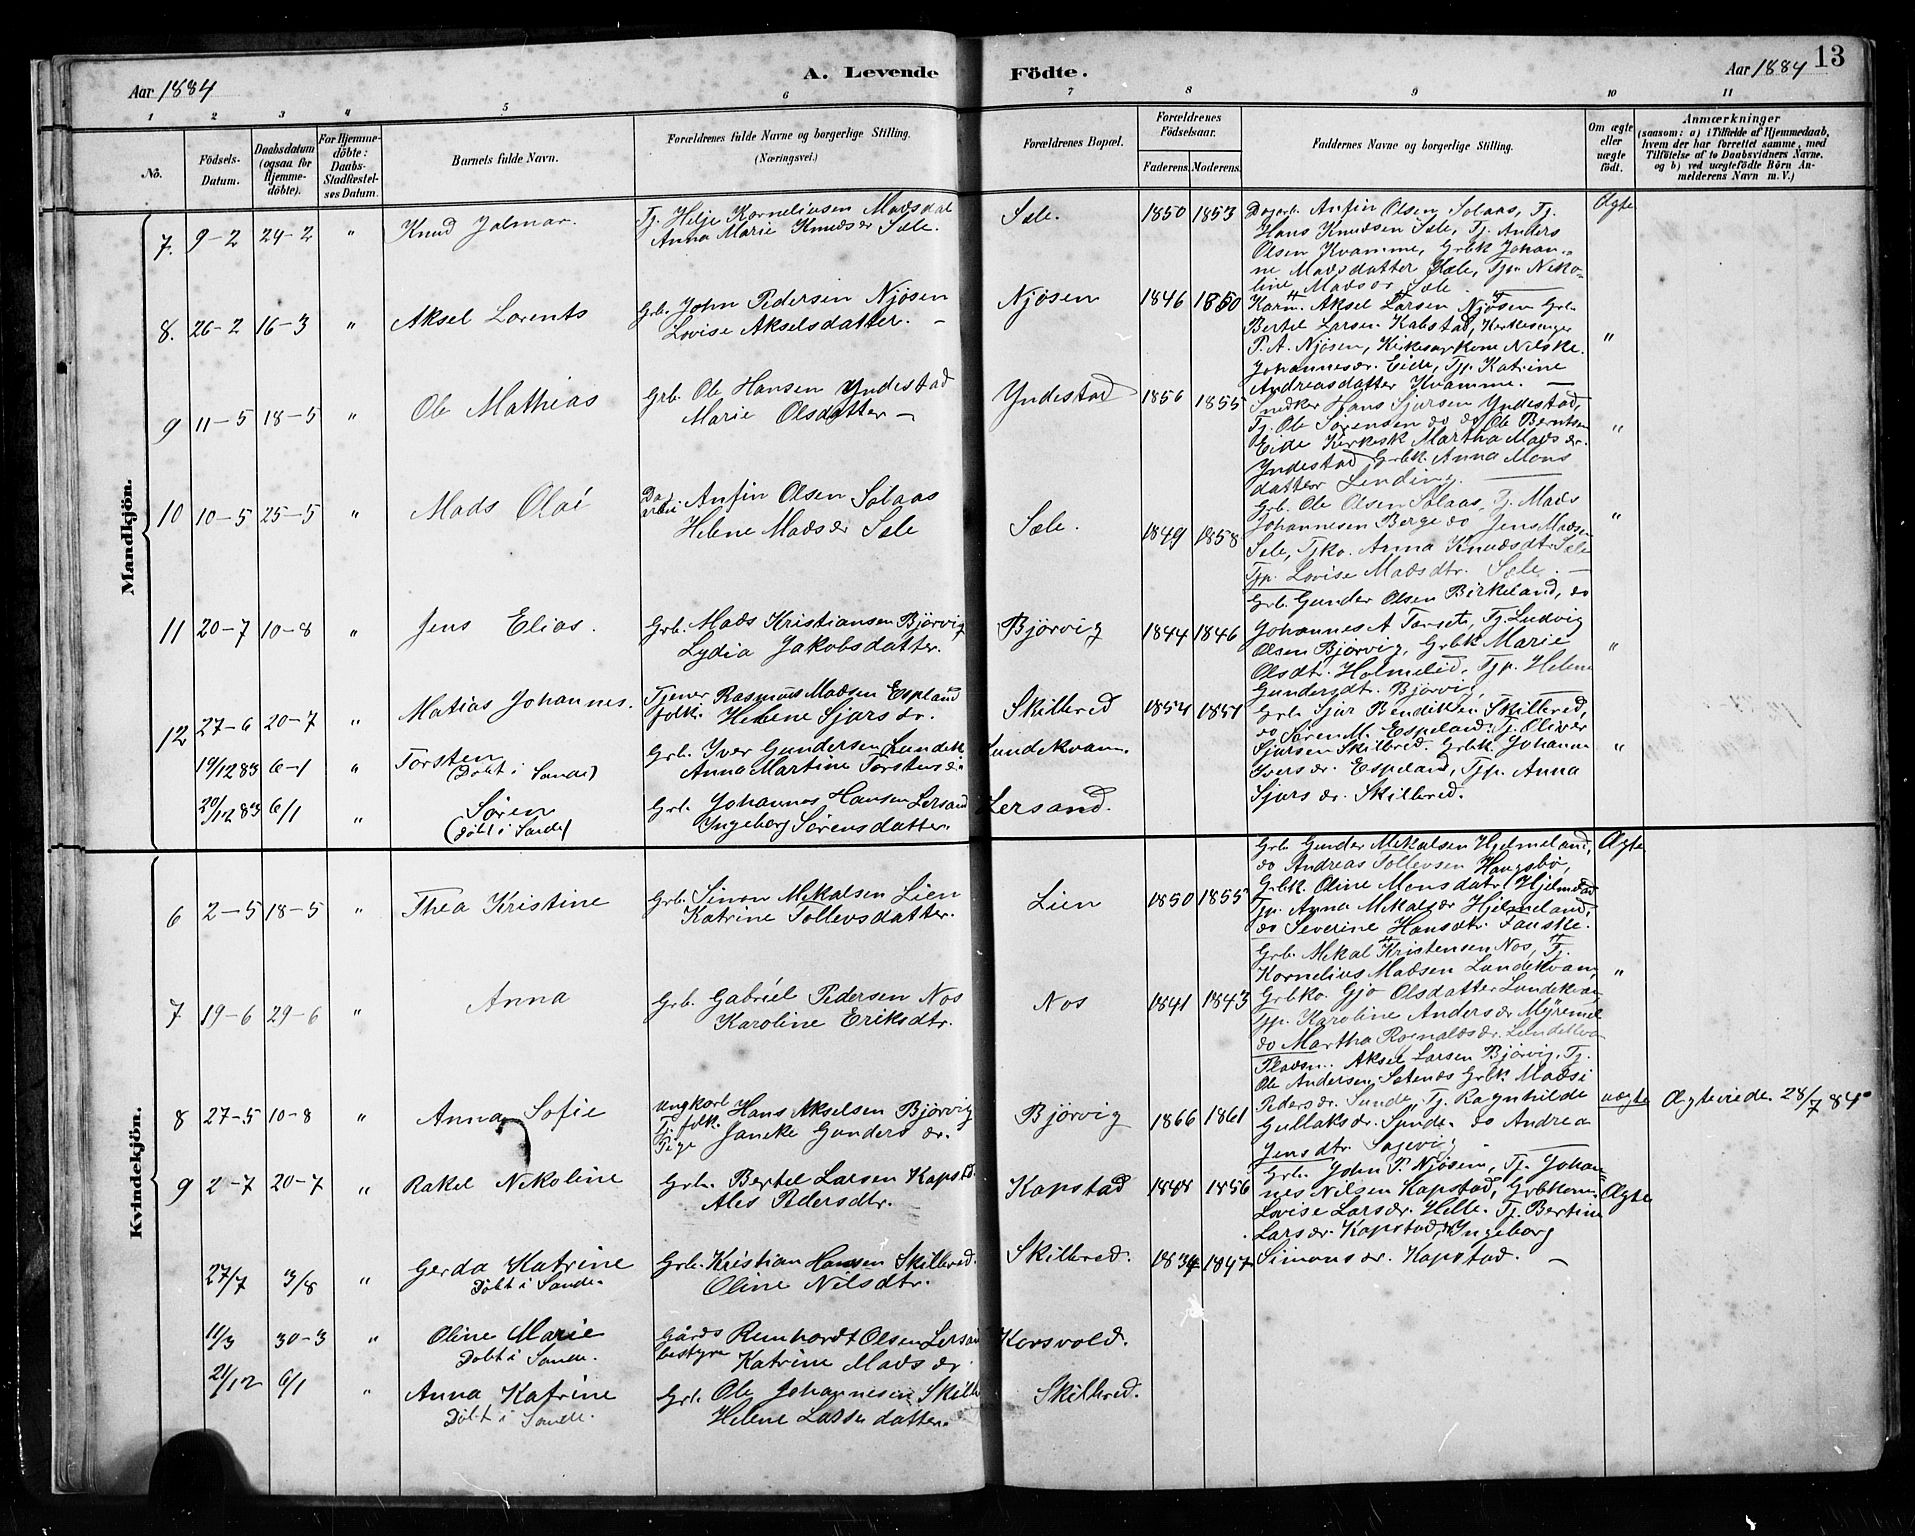 13
Aar 1884 A. Levende Födte. Aar 1884
1 2 3 4 5 6 7 8 9 10 11
No. Födsels-Datum. Daabsdatum (ogsaa for Hjemme-döbte). For Hjemme-döbte: Daabs-Stadfestel-ses Datum. Barnets fulde Navn. Forældrenes fulde Navne og borgerlige Stilling. (Næringsvei.) Forældrenes Bopæl. Forældrenes Födselsaar. Faderens. Moderens. Faddernes Navne og borgerlige Stilling. Om ægte eller uægte födt. Anmærkninger (saasom: a) i Tilfælde af Hjemmedaab, hvem der har forrettet samme, med Tilföielse af to Daabsvidners Navne, og b) ved uægtefödte Börn An-melderens Navn m. V.)
Mandkjön.
7. 9-2 24-2 " Knud Jalmar. Tj. Helje Korneliusen Madsdal
Anna Marie Knudsdr Sæle. Sæle. 1850 1853 Dagarb. Anfin Olsen Solaas, Tj. Ægte
Hans Knudsen Sæle, Tj. Anders
Olsen Kvamme, Grbk Johan-
ne Madsdatter Sæle, Tjp. Niko-
line Madsdr Sæle
8. 26-2 16-3 " Aksel Lorents Grb. John Pedersen Njøsen
Lovise Akselsdatter. - Njøsen 1846 1850 Karm. Aksel Larsen Njøsen Grb.
Bertel Larsen Kabstad, Kirkesanger
P. A. Njøsen, Kirkesangkone Nilske "
Johannesdr. Eide, Tjp. Katrine
Andreasdatter Kvamme. -
9 11-5 18-5 " Ole Mathias Grb. Ole Hansen Yndestad
Marie Olsdatter - Yndestad 1856 1855 Snedker Hans Sjursen Yndestad,
Tj. Ole Sørensen do do Ole Berntsen "
Eide Kirkesk Martha Madsdr.
Yndestad Grbk. Anna Mons
datter Lending.
10 10-5 25-5 " Mads Olai Dagarbei Anfin Olsen Solaas
Helene Madsdr Sæle Sæle. 1849 1858 Grb. Ole Olsen Solaas, Tj. Mads
Johannesen Berge do Jens Mads. "
Sæle, Tjko. Anna Knudsdtr Sæle
Tjp. Lovise Madsdtr. Sæle. -
11 20-7 10-8 " Jens Elias. Grb. Mads Kristiansen Bjørvig
Lydia Jakobsdatter. Bjørvig 1844 1846 Grb. Gunder Olsen Birkeland, do
Johannes A Torset, Tj Ludvig
Olsen Bjørvig, Grbk Marie "
Olsdtr. Holmelid. Tjp. Helene
Gundersdtr. Bjørvig
12 27-6 20-7 " Matias Johannes. Tjener Rasmus Madsen Espeland
folk. Helene Sjursdr. Skilbred 1854 1851 Grb. Sjur Bendiksen Skilbred,
do Søren M. Espeland. Tj. Oliver
Sjursen Skilbred. Grbk. Johanne "
Iversdr. Espeland, Tjp. Anna
Sjursdr. Skilbred.
19/12 83 6-1 " Torsten
(Døbt i Sande) Grb. Iver Gundersen Lundek
Anna Martine Torstensdr Lundekvam.
20/12 83 6/1 " Søren
(døbt i Sande) Grb. Johannes Hansen Lersand
Ingeborg Sørensdatter. Lersand.
Kvindekjön.
6 2-5 18-5 " Thea Kristine Grb. Simon Mekalsen Lien
Katrine Tollevsdatter. Lien 1850 1855 Grb. Gunder Mekalsen Hjelmeland, Ægte
do Andreas Tollevsen Haugsbø,
Grbk. Oline Monsdatr. Hjelmelad
Tjp. Anna Mekalsdr Hjelmeland,
do Severine Hansdtr. Fauske.
7 19-6 29-6 " Anna Grb. Gabriel Pedersen Nos
Karoline Eriksdtr. Nos 1841 1843 Grb. Mekal Kristensen Nos, Tj.
Kornelius Madsen Lundekvam, "
Grbko. Gjo Olsdatter Lundekvam
Tjp. Karoline Andersdr Myremel
do Martha Ragnaldsdr. Lundekva
8 27-5 10-8 " Anna Sofie Ungkarl Hans Akselsen Bjørvig
Tj. folk.
Pige Janeke Gundersdr. Bjørvig 1866 1861 Pladsm. Aksel Larsen Bjørvig, Tj.
Ole Andersen Sætenes Grbk. Madsi
Pedersdr. Sunde, Tj. Ragnhilde uægte Ægteviede 28/7 84.
Gullaksdr. Sunde. do Andrea
Jensdtr. Sagevig
9 2-7 20-7 " Rakel Nikoline Grb. Bertel Larsen Kapstad
Ales Pedersdtr. Kapstad 1848 1856 Grb. John P. Njøsen, Tj. Johan-
nes Nilsen Kapstad, Grbkone Ægte
Lovise Larsdr. Helle. Tj. Bertine
Larsdr. Kapstad, Ingeborg
Simonsdr. Kapstad. -
27/7 3/8 " Gerda Katrine
Døbt i Sande. Grb. Kristian Hansen Skilbred
Oline Nilsdtr. Skilbred. 1834 1847
11/3 30-3 " Oline Marie
Døbt i Sande. Gårds Reinhardt Olsen Lersan
bestyre Katrine Madsdr. Korsvold.
21/12 6/1 " Anna Katrine
Døbt i Sande. Grb. Ole Johannesen Skilb
Helene Larsdatter. Skilbred.